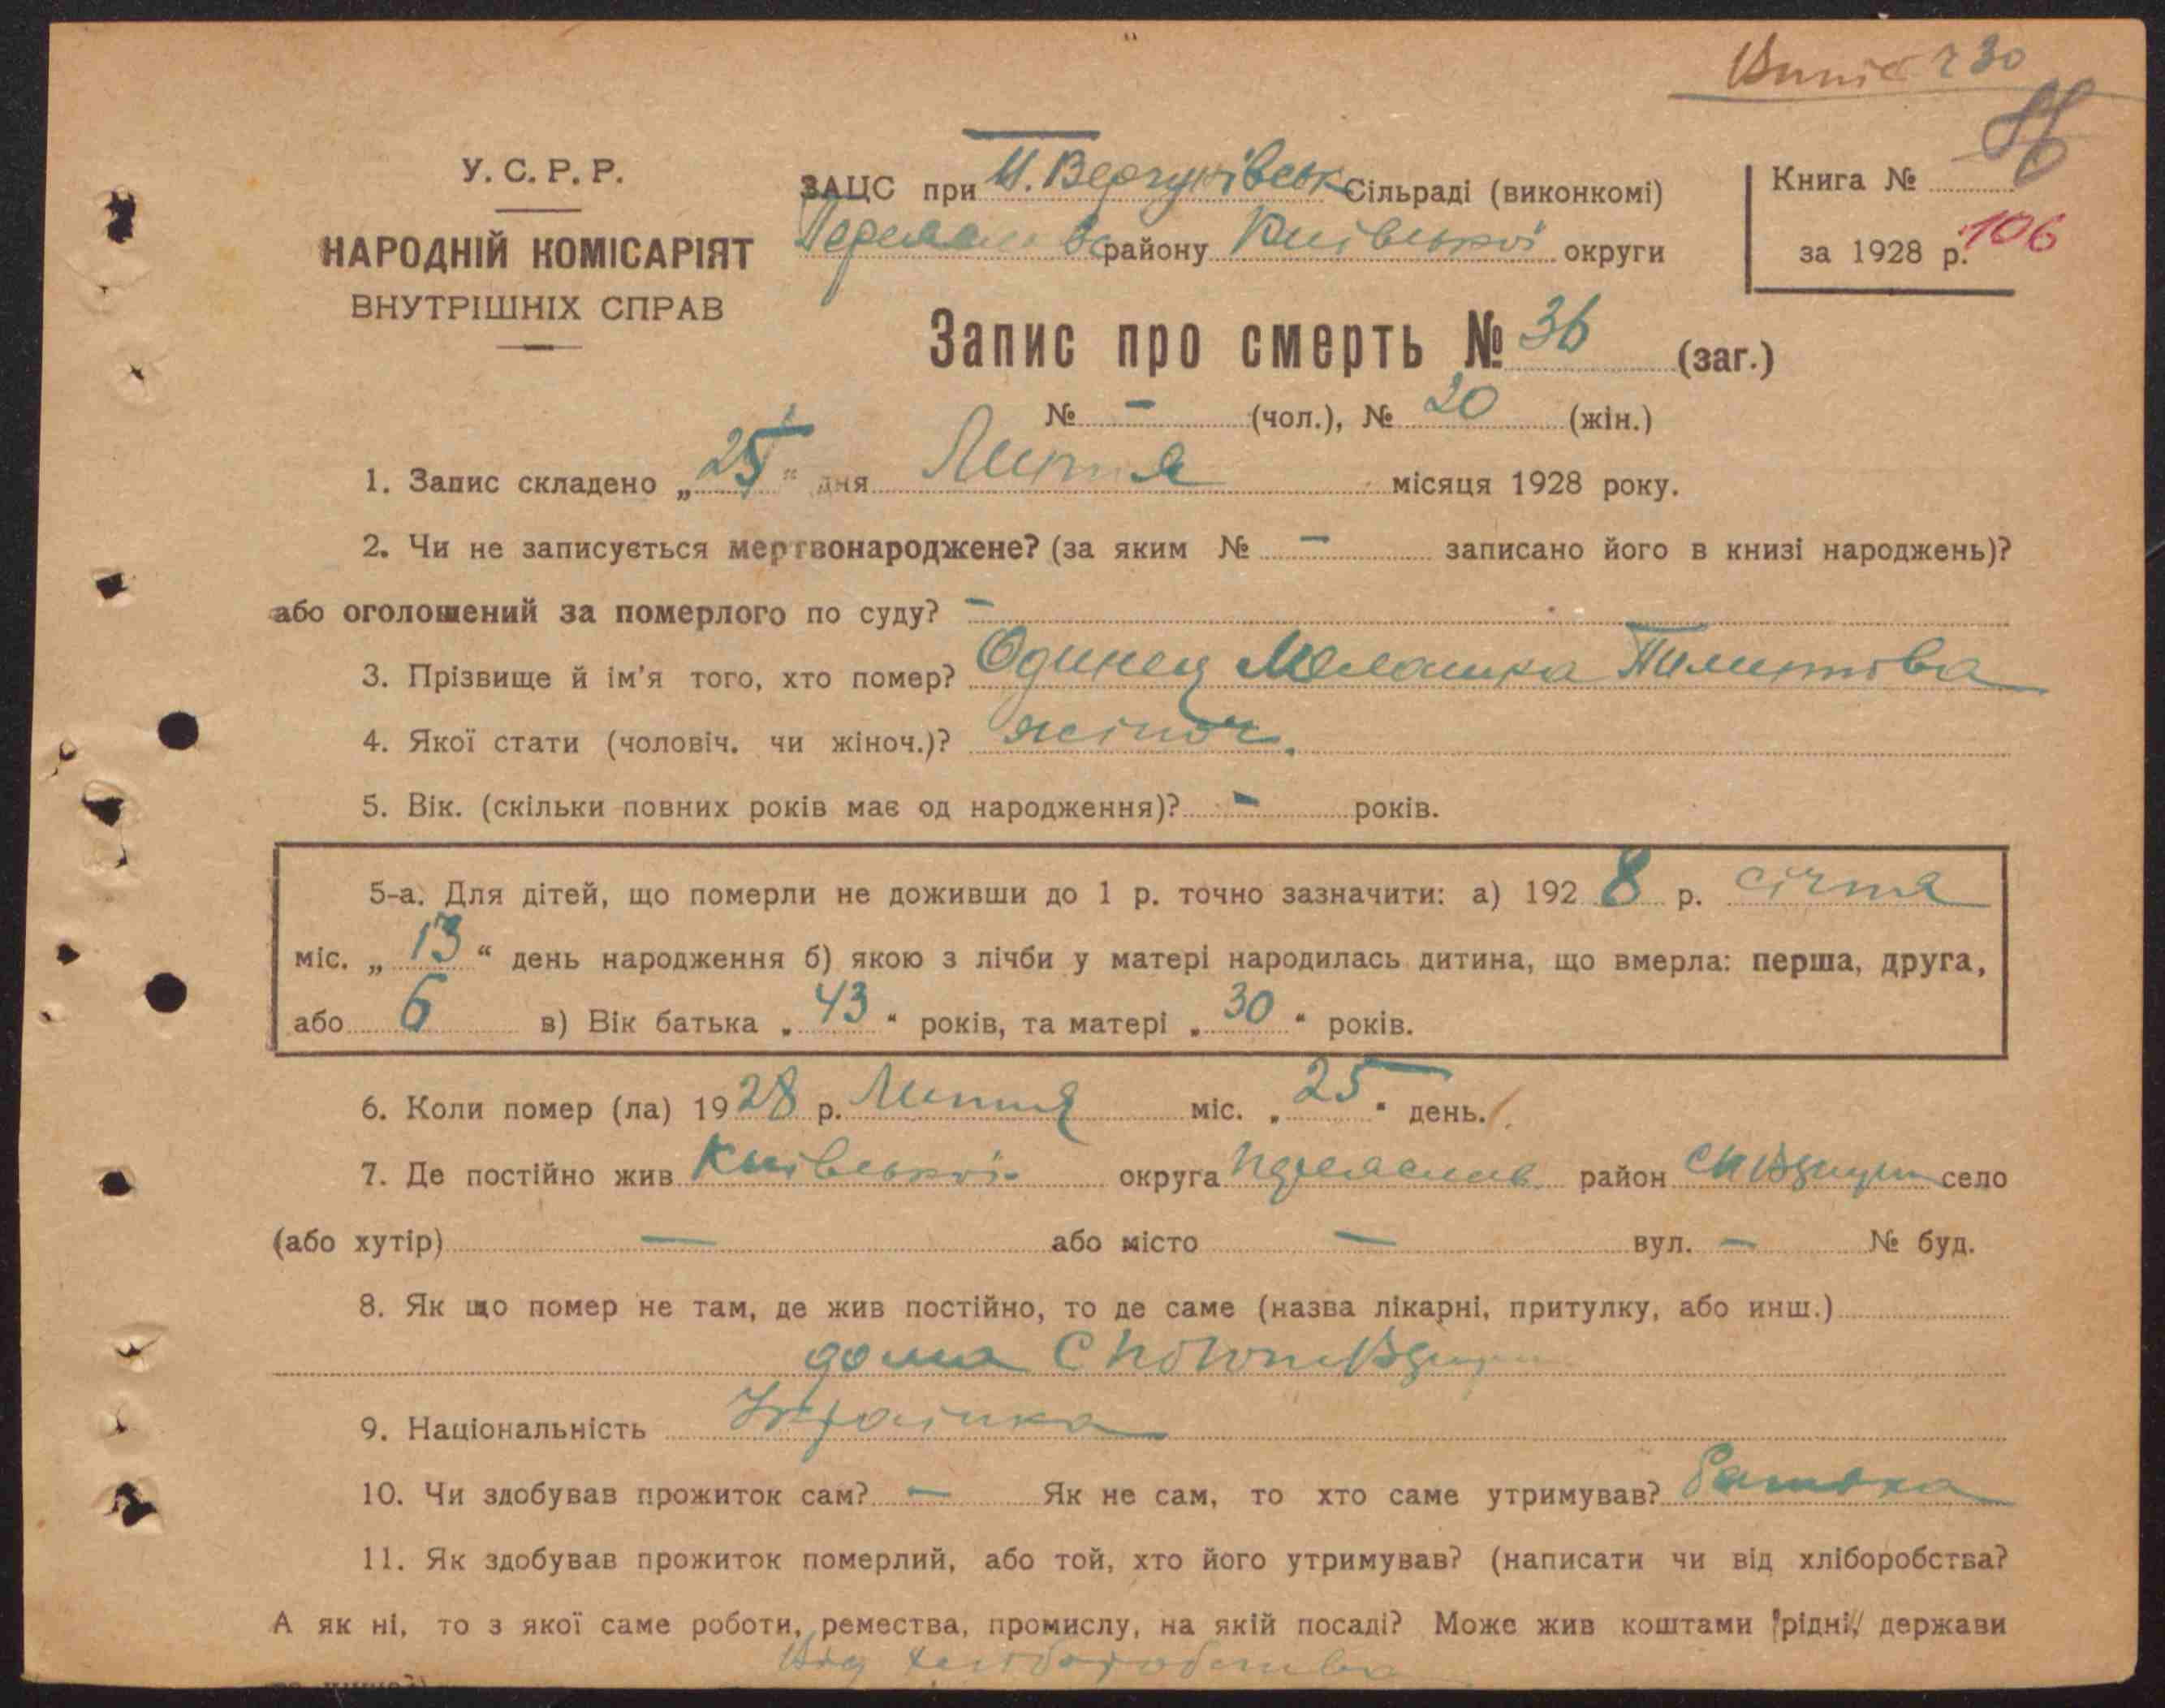 У. С. Р. Р.
НАРОДНІЙ КОМІСАРІЯТ
ВНУТРІШНІХ СПРАВ
ЗАЦС при Сільраді (виконкомі)
району Київської округи
Книга №
за 1928 р. 106
Запис про смерть № 36 (заг.)
№ — (чол.), № 20 (жін.)
1. Запис складено „25“ дня Липня місяця 1928 року.
2. Чи не записується мертвонароджене? (за яким № — записано його в книзі народжень)?
або оголошений за померлого по суду? —
3. Прізвище й ім'я того, хто помер? Одинец Мелашка
4. Якої стати (чоловіч. чи жіноч.)? жіноч.
5. Вік. (скільки повних років має од народження)? — років.
5-а. Для дітей, що померли не доживши до 1 р. точно зазначити: а) 1928 р. січня
міс. „13“ день народження б) якою з лічби у матері народилась дитина, що вмерла: перша, друга,
або 6 в) Вік батька „43“ років, та матері „30“ років.
6. Коли помер (ла) 1928 р. Липня міс. „25“ день.
7. Де постійно жив Київської округа район село
(або хутір) — або місто — вул. — № буд.
8. Як що помер не там, де жив постійно, то де саме (назва лікарні, притулку, або инш.)
дома
9. Національність Українка
10. Чи здобував прожиток сам? — Як не сам, то хто саме утримував?
11. Як здобував прожиток померлий, або той, хто його утримував? (написати чи від хліборобства?
А як ні, то з якої саме роботи, ремества, промислу, на якій посаді? Може жив коштами рідні, держави
Від хліборобства